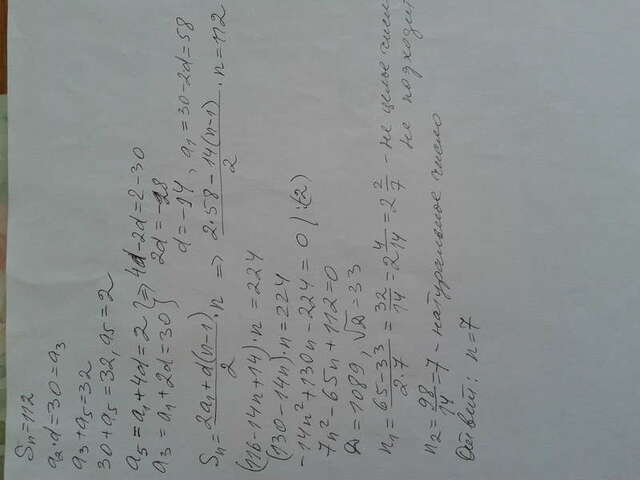 Sn=112
a₂·d=30=a₃
a₃+a₅=32
30+a₅=32, a₅=2
a₅=a₁+4d=2 } => 4d-2d=2-30
a₃=a₁+2d=30 } 2d=-28
d=-14, a₁=30-2d=58
Sn=(2a₁+d(n-1))/2·n => (2·58-14(n-1))/2·n=112
(116-14n+14)·n=224
(130-14n)·n=224
-14n²+130n-224=0 |:(-2)
7n²-65n+112=0
D=1089, √D=33
n₁=(65-33)/(2·7)=32/14=2 4/14=2 2/7 - не целое число
не подходит
n₂=98/14=7 - натуральное число
Ответ: n=7